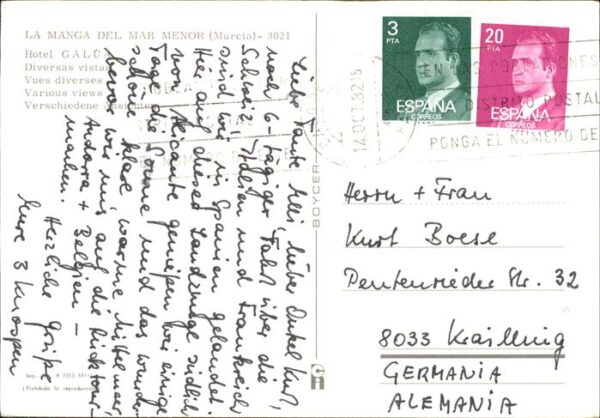 LA MANGA DEL MAR MENOR (Murcia) - 3021
Hotel GALUA
Diversas vistas
Vues diverses
Various views
Verschiedene Ansichten
Liebe Tante Mei, lieber Onkel Kurt,
nach 6-tägiger Fahrt über die
Schweiz, Italien und Frankreich
sind wir in Spanien gelandet.
Hier auf dieser Landzunge südlich
von Alicante genießen wir einige
Tage die Sonne und das wunder-
schöne klare, warme Mittelmeer,
bevor wir uns auf die Rücktour
Andorra + Belgien –
machen.
Herzliche Grüße
Eure 3 Knospen
BOYCER
3
PTA
ESPAÑA
CORREOS
20
PTA
ESPAÑA
CORREOS
14 OCT 82
DISTRITO POSTAL
PONGA EL NUMERO DE
Herrn + Frau
Kurt Boese
Pentenrieder Str. 32
8033 Krailling
GERMANIA
ALEMANIA
(Prohibida la reproducción)